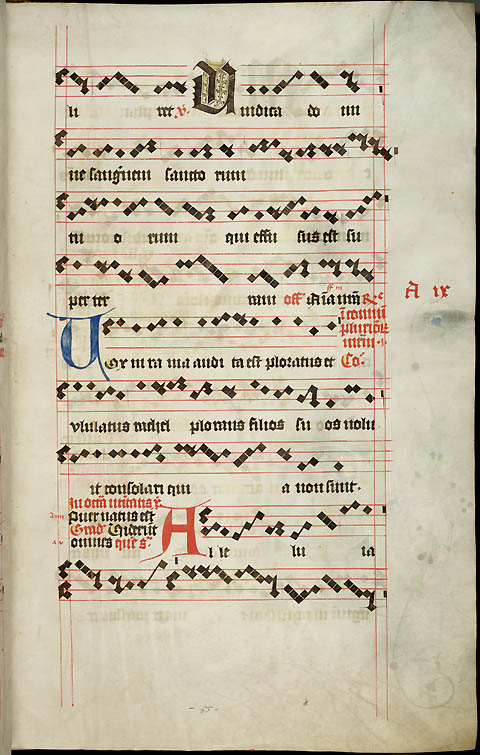 li ret ꝟ. Vindica do mi
ne sanguinem sancto rum
tu o rum qui effu sus est su
per ter ram off Aīa nrā
A ix
Vox in ra ma audi ta est ploratus et Co.
ululatus rachel plorans filios su os nolu
it consolari qui a non sunt.
In octā
Puer natus est
Grad' Viderunt
omnes
Al le lu ia